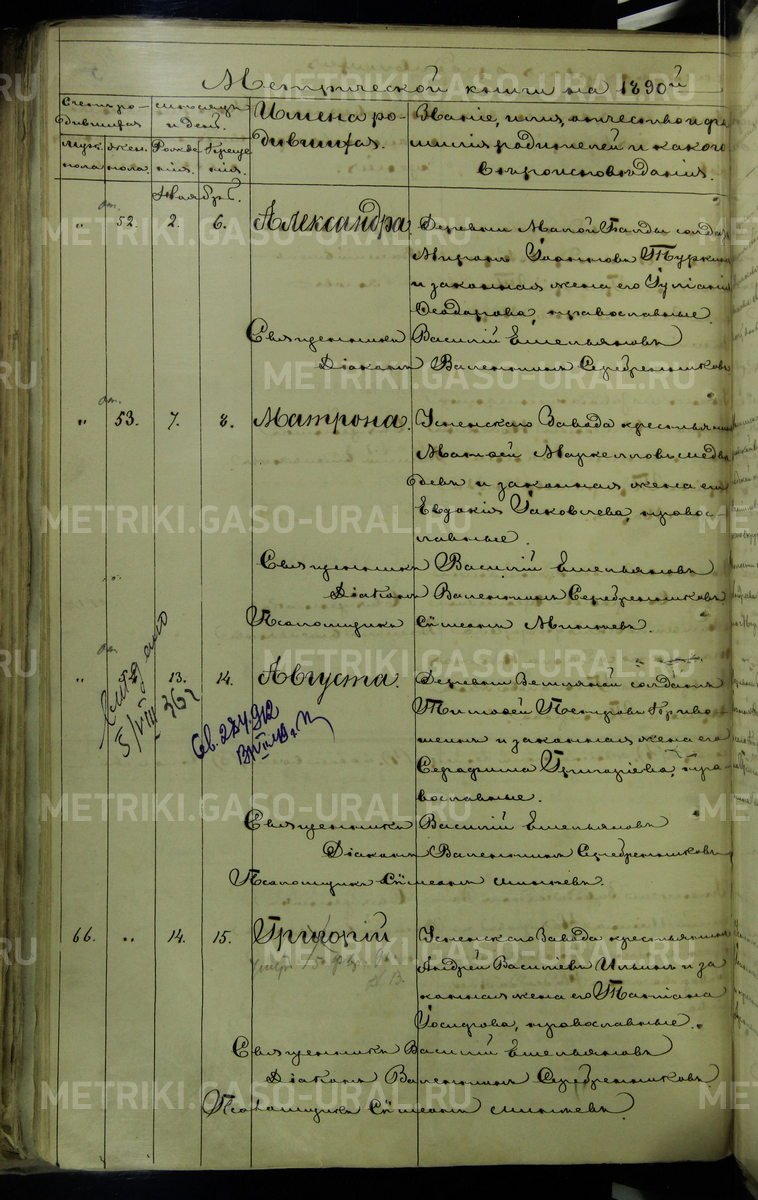 Метрической книги на 1890й
Счетъ родившихся
Мѣсяцъ и день.
Имена родившихся.
Званіе, имя, отчество и фамилія родителей и какого вѣроисповѣданія.
муж. пола
жен. пола
Рожденія.
Крещенія.
Ноябрь.
„ 52. 2. 6. Александра.
Деревни Малой
Миронъ Іоанновъ
и законная жена его Іуліанія
Ѳеодорова, православные.
Священникъ Василій Емельяновъ
Діаконъ Валентинъ Серебренниковъ
„ 53. 7. 8. Матрона.
Успенскаго Завода крестьянинъ
Матѳей Маркелловъ Медвѣ
девъ и законная жена его
Евдокія Іаковлева, правос-
лавные.
Священникъ Василій Емельяновъ
Діаконъ Валентинъ Серебренниковъ
Псаломщикъ Сѵмеонъ
„ 13. 14. Августа.
Деревни солдатъ
Тимоѳей Петровъ Криво
шеинъ и законная жена его
Серафима Григоріева, пра-
вославные.
5/VIII
Св. 284.912
Священникъ Василій Емельяновъ
Діаконъ Валентинъ Серебренниковъ
Псаломщикъ Сѵмеонъ
66. „ 14. 15. Григорій
Успенскаго Завода крестьянинъ
Андрей Василіевъ Ильинъ и за
конная жена его Татіана
Іосифова, православные.
Священникъ Василій Емельяновъ
Діаконъ Валентинъ Серебренниковъ
Псаломщикъ Сѵмеонъ
METRIKI.GASO-URAL.RU